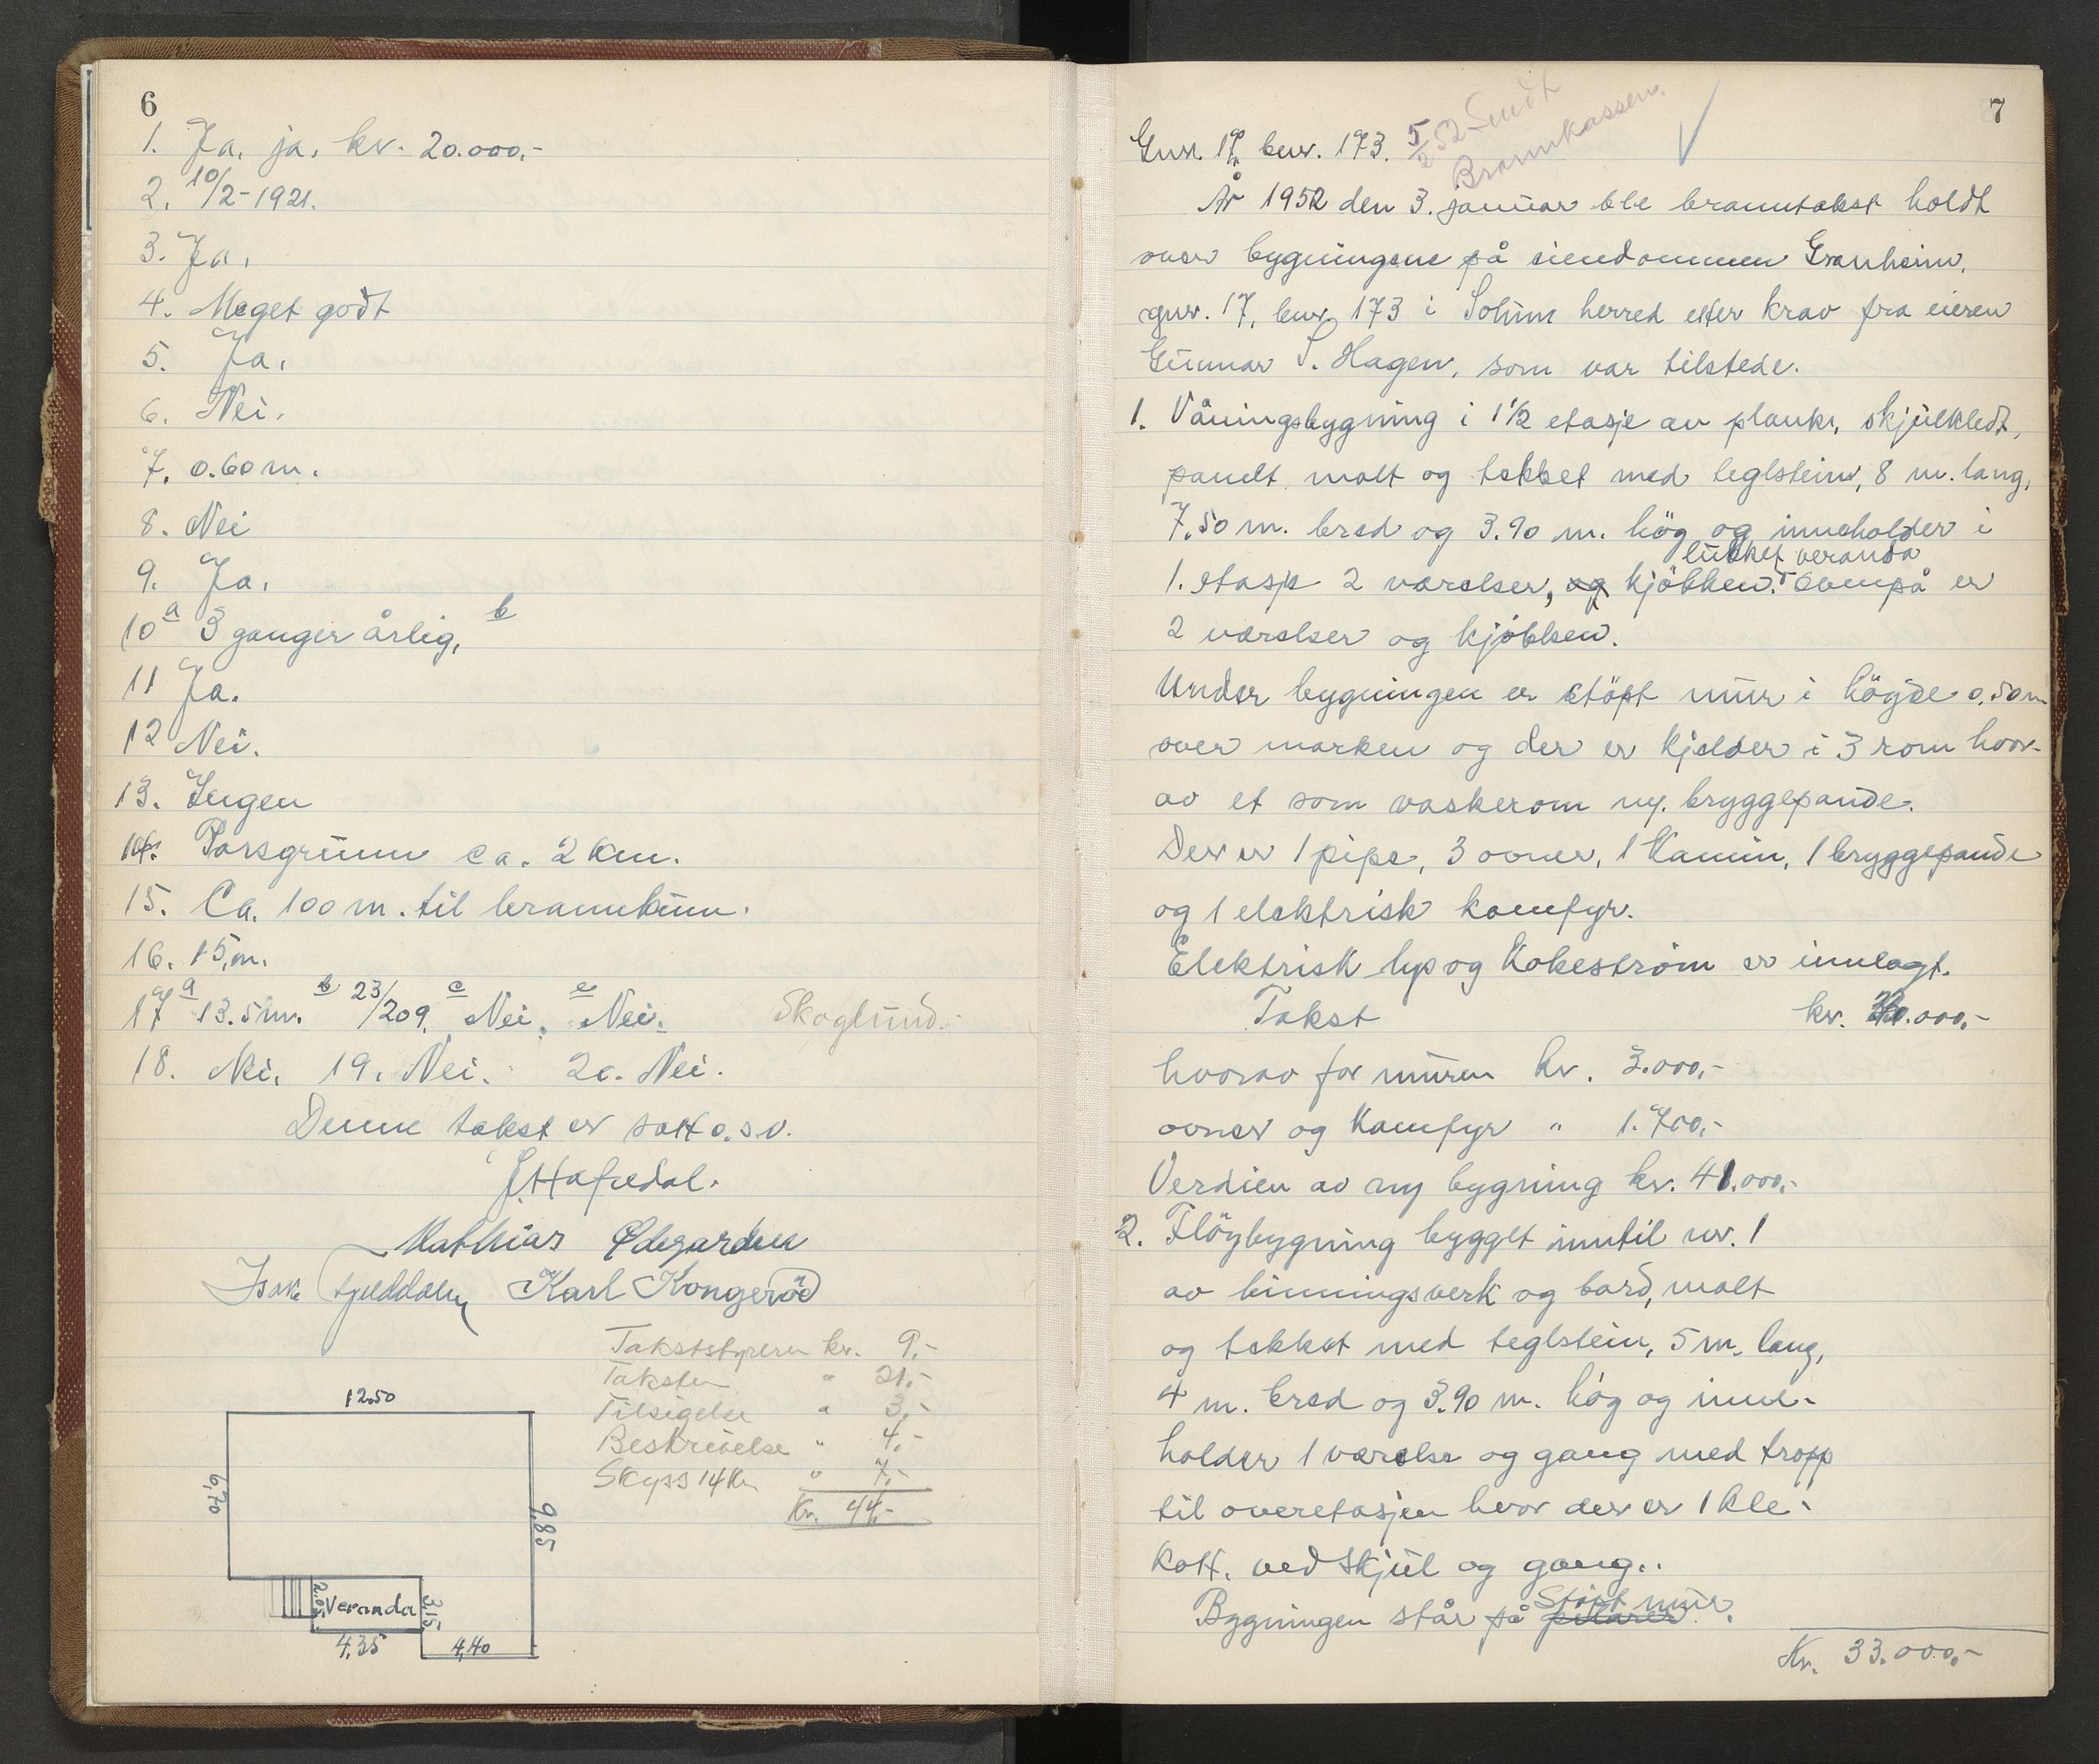 6
1. Ja, ja, kr. 20.000,-
2. 10/2-1921.
3. Ja,
4. Meget godt
5. Ja,
6. Nei.
7. 0.60 m.
8. Nei
9. Ja,
10 a 3 ganger årlig, b
11 Ja.
12 Nei.
13. Ingen
14. Porsgrunn ca. 2 km.
15. Ca. 100 m. til brannkum.
16. 15, m.
17 a 13.5 m. b 23/209. c Nei. e Nei. Skoglund.-
18. Nei. 19. Nei. 20. Nei.
Denne takst er satt o.s.v.
J. Hafredal.
Mathias Ødegarden
Isak Karl Kongerød
Takststyreren kr. 9,-
Taksten " 21,-
Tilsigelse " 3,-
Beskrivelse " 4,-
Skyss 14 km " 7,-
Kr. 44,-
12.50
6,70
9,85
2,05
Veranda
3,15
4,35
4,40
7
Gnr. 17, bnr. 173. 5/2 52 Sendt
Brannkassen.
År 1952 den 3. januar ble branntakst holdt
over bygningene på eiendommen Granheim,
gnr. 17, bnr. 173 i Solum herred etter krav fra eieren
Gunnar S. Hagen, som var tilstede.
1. Våningsbygning i 1 1/2 etasje av plank, skjulkledt,
panelt, malt og tekket med teglstein, 8 m. lang,
7,50 m. bred og 3.90 m. hög og inneholder i
lukket veranda
1. etasje 2 værelser, og kjökken. Ovenpå er
2 værelser og kjökken.
Under bygningen er stöpt mur i högde 0,50 m
over marken og der er kjelder i 3 rom hvor-
av et som vaskerom m. bryggepande.
Der er 1 pipe, 3 ovner, 1 Kamin, 1 bryggepande
og 1 elektrisk komfyr.
Elektrisk lys og Kokeström er innlagt.
Takst kr. .000,-
hvorav for muren kr. 3.000,-
ovner og Komfyr " 1.700,-
Verdien av ny bygning kr. 41.000.-
2. Flöybygning bygget inntil nr. 1
av binningsverk og bord, malt
og tekket med teglstein, 5 m. lang,
4 m. bred og 3.90 m. hög og inne-
holder 1 værelse og gang med tropp
til overetasjen hvor der er 1 kle-
kott, vedskjul og gang..
Stöpt mur.
Bygningen står på pilarer.
Kr. 33.000,-